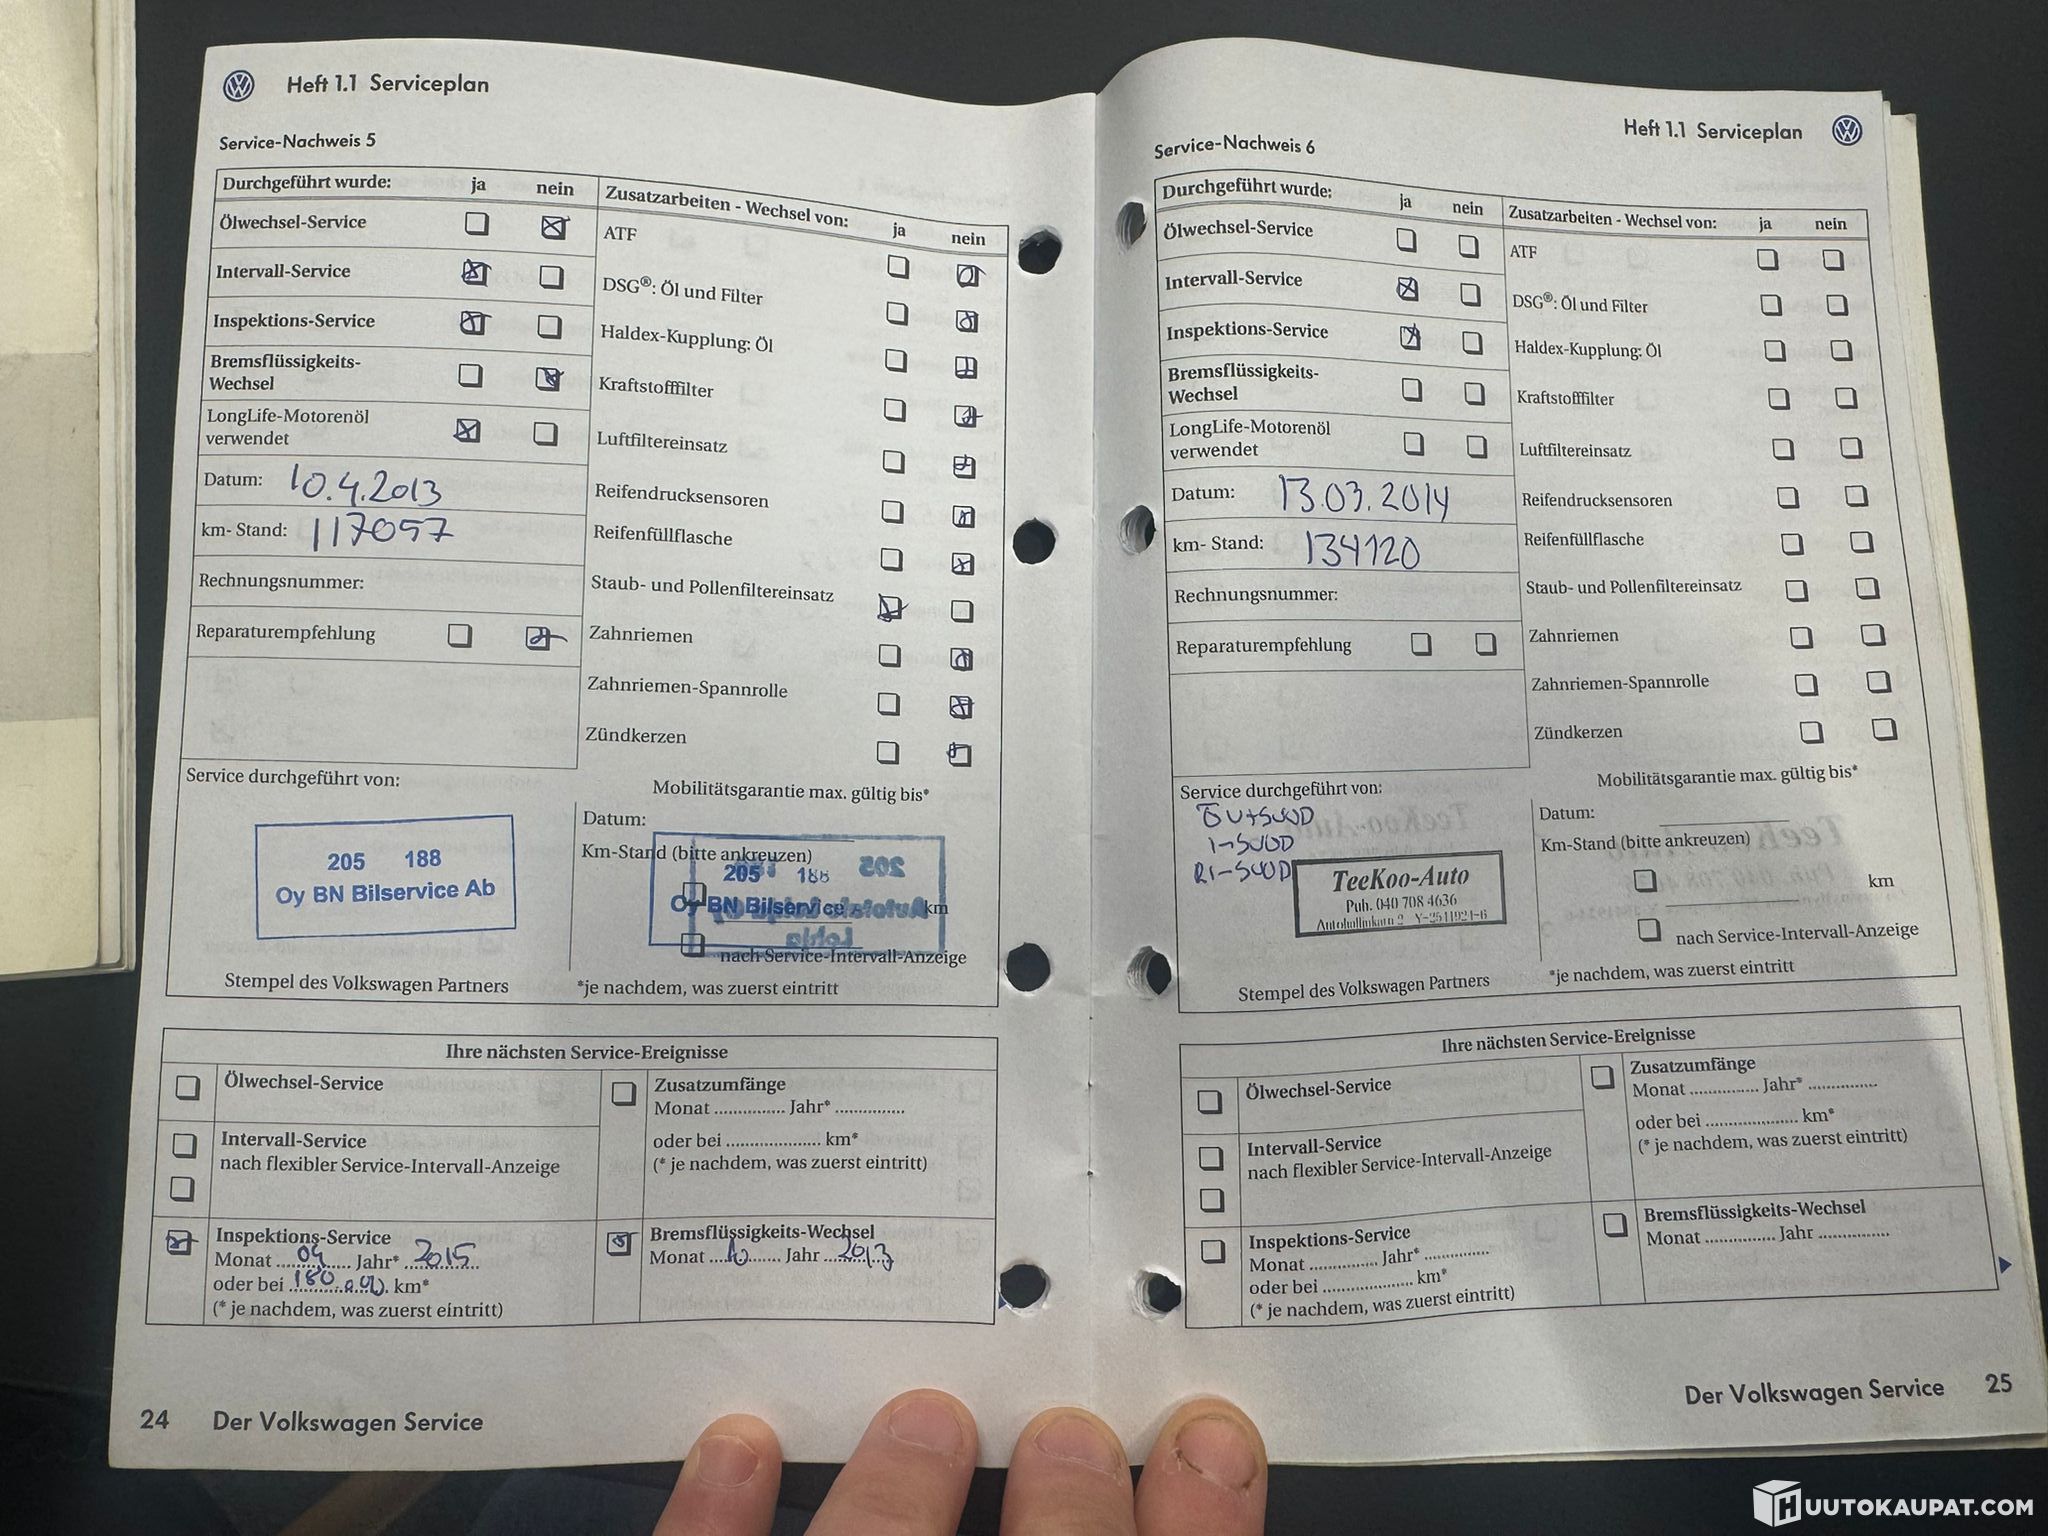 Heft 1.1 Serviceplan
Service-Nachweis 5
Durchgeführt wurde: ja nein
Ölwechsel-Service
Intervall-Service
Inspektions-Service
Bremsflüssigkeits-
Wechsel
LongLife-Motorenöl
verwendet
Datum: 10.4.2013
km- Stand: 117057
Rechnungsnummer:
Reparaturempfehlung
Zusatzarbeiten - Wechsel von: ja nein
ATF
DSG®: Öl und Filter
Haldex-Kupplung: Öl
Kraftstofffilter
Luftfiltereinsatz
Reifendrucksensoren
Reifenfüllflasche
Staub- und Pollenfiltereinsatz
Zahnriemen
Zahnriemen-Spannrolle
Zündkerzen
Service durchgeführt von:
205 188
Oy BN Bilservice Ab
Stempel des Volkswagen Partners
Mobilitätsgarantie max. gültig bis*
Datum:
Km-Stand (bitte ankreuzen)
205 188
Oy BN Bilservice
km
nach Service-Intervall-Anzeige
*je nachdem, was zuerst eintritt
Ihre nächsten Service-Ereignisse
Ölwechsel-Service
Intervall-Service
nach flexibler Service-Intervall-Anzeige
Inspektions-Service
Monat 04 Jahr* 2015
oder bei 180.000 km*
(* je nachdem, was zuerst eintritt)
Zusatzumfänge
Monat ............... Jahr* ...............
oder bei .................... km*
(* je nachdem, was zuerst eintritt)
Bremsflüssigkeits-Wechsel
Monat 10 Jahr 2013
24 Der Volkswagen Service
Heft 1.1 Serviceplan
Service-Nachweis 6
Durchgeführt wurde: ja nein
Ölwechsel-Service
Intervall-Service
Inspektions-Service
Bremsflüssigkeits-
Wechsel
LongLife-Motorenöl
verwendet
Datum: 13.03.2014
km- Stand: 134120
Rechnungsnummer:
Reparaturempfehlung
Zusatzarbeiten - Wechsel von: ja nein
ATF
DSG®: Öl und Filter
Haldex-Kupplung: Öl
Kraftstofffilter
Luftfiltereinsatz
Reifendrucksensoren
Reifenfüllflasche
Staub- und Pollenfiltereinsatz
Zahnriemen
Zahnriemen-Spannrolle
Zündkerzen
Service durchgeführt von:
TeeKoo-Auto
Puh. 040 708 4636
Stempel des Volkswagen Partners
Mobilitätsgarantie max. gültig bis*
Datum:
Km-Stand (bitte ankreuzen)
km
nach Service-Intervall-Anzeige
*je nachdem, was zuerst eintritt
Ihre nächsten Service-Ereignisse
Ölwechsel-Service
Intervall-Service
nach flexibler Service-Intervall-Anzeige
Inspektions-Service
Monat ............... Jahr* ...............
oder bei .................... km*
(* je nachdem, was zuerst eintritt)
Zusatzumfänge
Monat ............... Jahr* ...............
oder bei .................... km*
(* je nachdem, was zuerst eintritt)
Bremsflüssigkeits-Wechsel
Monat ............... Jahr ...............
Der Volkswagen Service 25
HUUTOKAUPAT.COM